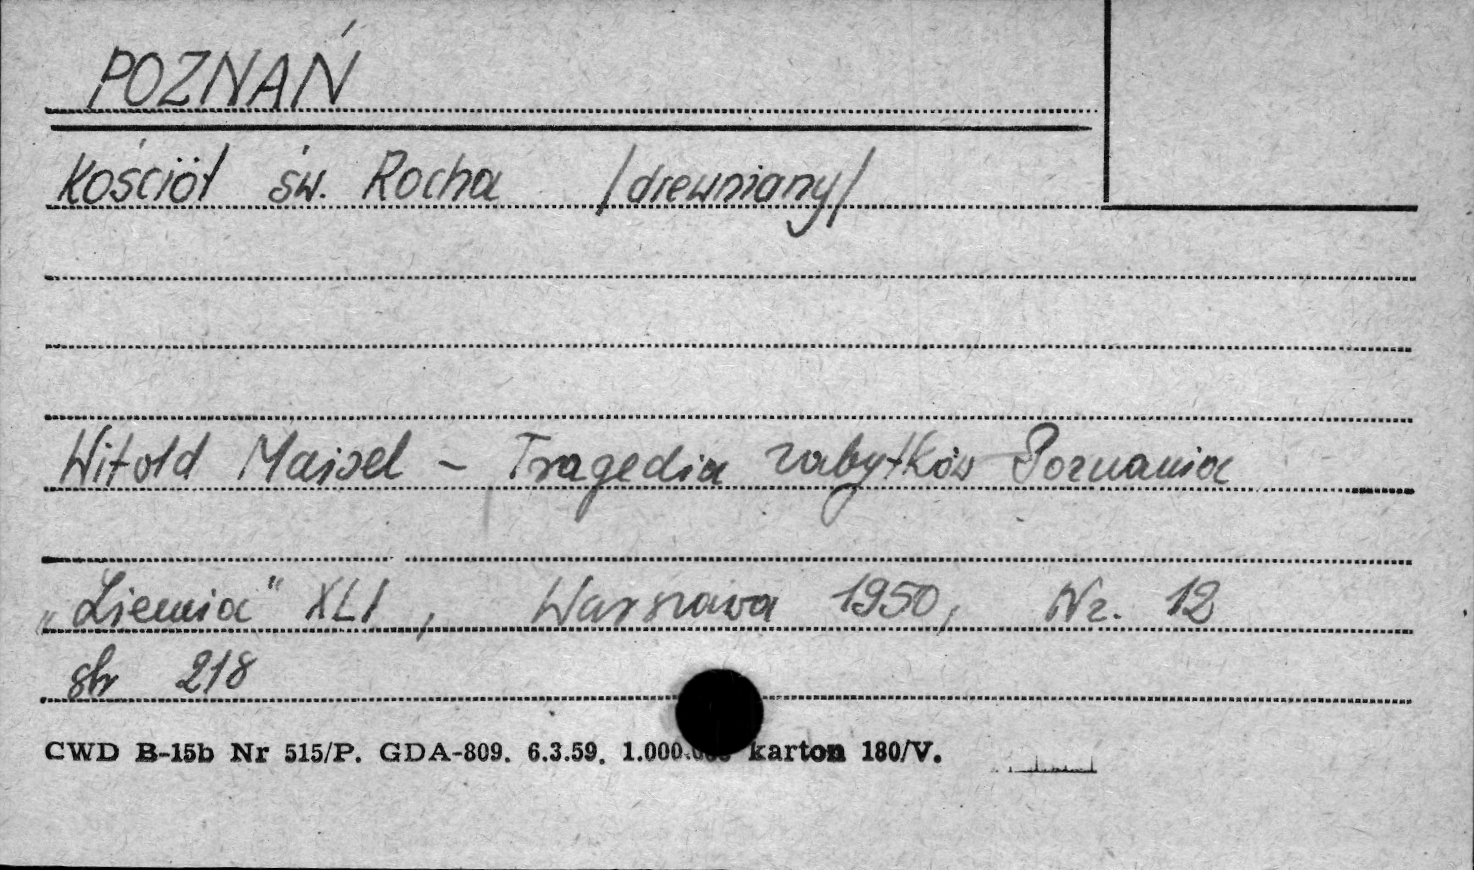 POZNAŃ
Kościół św. Rocha /drewniany/
Witold Maisel - Tragedia zabytków Poznania
„Ziemia" XLI, Warszawa 1950, Nr. 12
str 218
CWD B-15b Nr 515/P. GDA-809. 6.3.59. 1.000.000 karton 180/V.